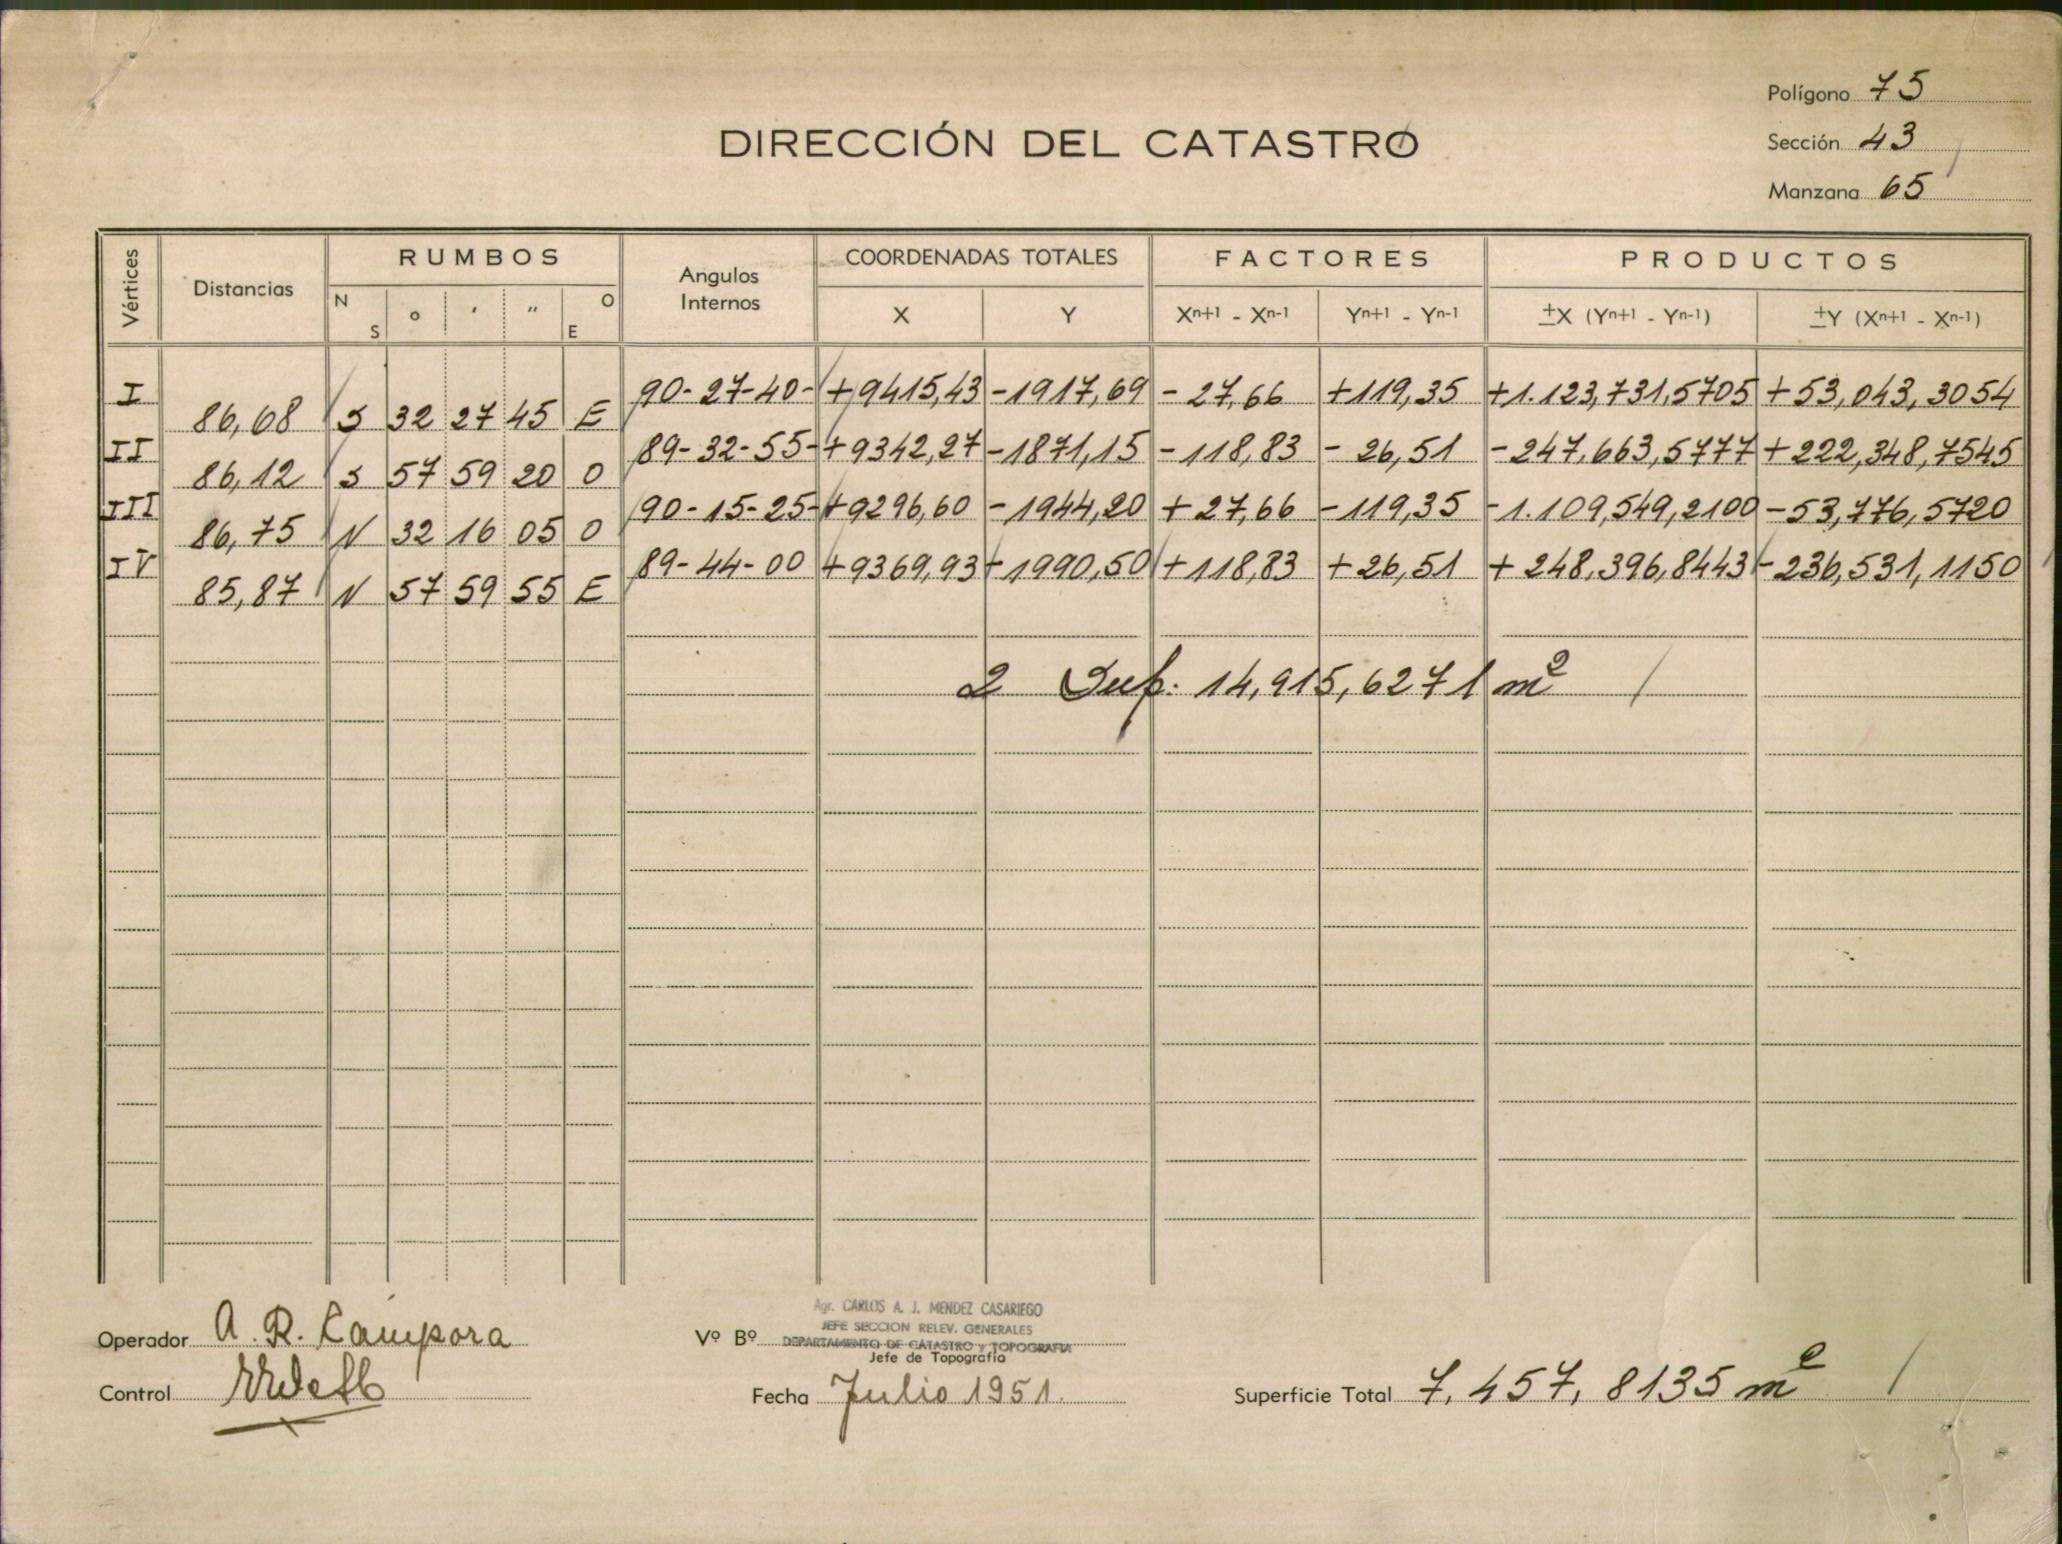 Polígono 75
DIRECCIÓN DEL CATASTRO
Sección 43
Manzana 65
Vértices Distancias RUMBOS Angulos Internos COORDENADAS TOTALES FACTORES PRODUCTOS
N S ° ' " O E X Y Xn+1 - Xn-1 Yn+1 - Yn-1 ±X (Yn+1 - Yn-1) ±Y (Xn+1 - Xn-1)
I 90-27-40- +9415,43 -1917,69 -27,66 +119,35 +1.123,731,5705 +53,043,3054
86,68 S 32 27 45 E
II 89-32-55- +9342,27 -1871,15 -118,83 -26,51 -247,663,5777 +222,348,7545
86,12 S 57 59 20 O
III 90-15-25- +9296,60 -1944,20 +27,66 -119,35 -1.109,549,2100 -53,776,5720
86,75 N 32 16 05 O
IV 89-44-00 +9369,93 -1990,50 +118,83 +26,51 +248,396,8443 -236,531,1150
85,87 N 57 59 55 E
2 Sup. 14,915,6271 m²
Agr. CARLOS A. J. MENDEZ CASARIEGO
JEFE SECCION RELEV. GENERALES
Operador A. R. Cámpora Vº Bº DEPARTAMENTO DE CATASTRO y TOPOGRAFIA
Jefe de Topografía
Control Fecha Julio 1951. Superficie Total 7.457,8135 m²